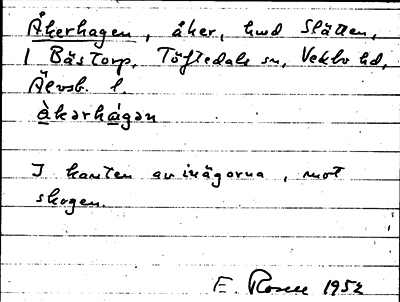 Åkerhagen, åker, hmd Slätten,
1 Bästorp, Töftedals sn, Vedbo hd,
Älvsb. l.
àkərhágən
I kanten av inägorna, mot
skogen.
E. Rosell 1952